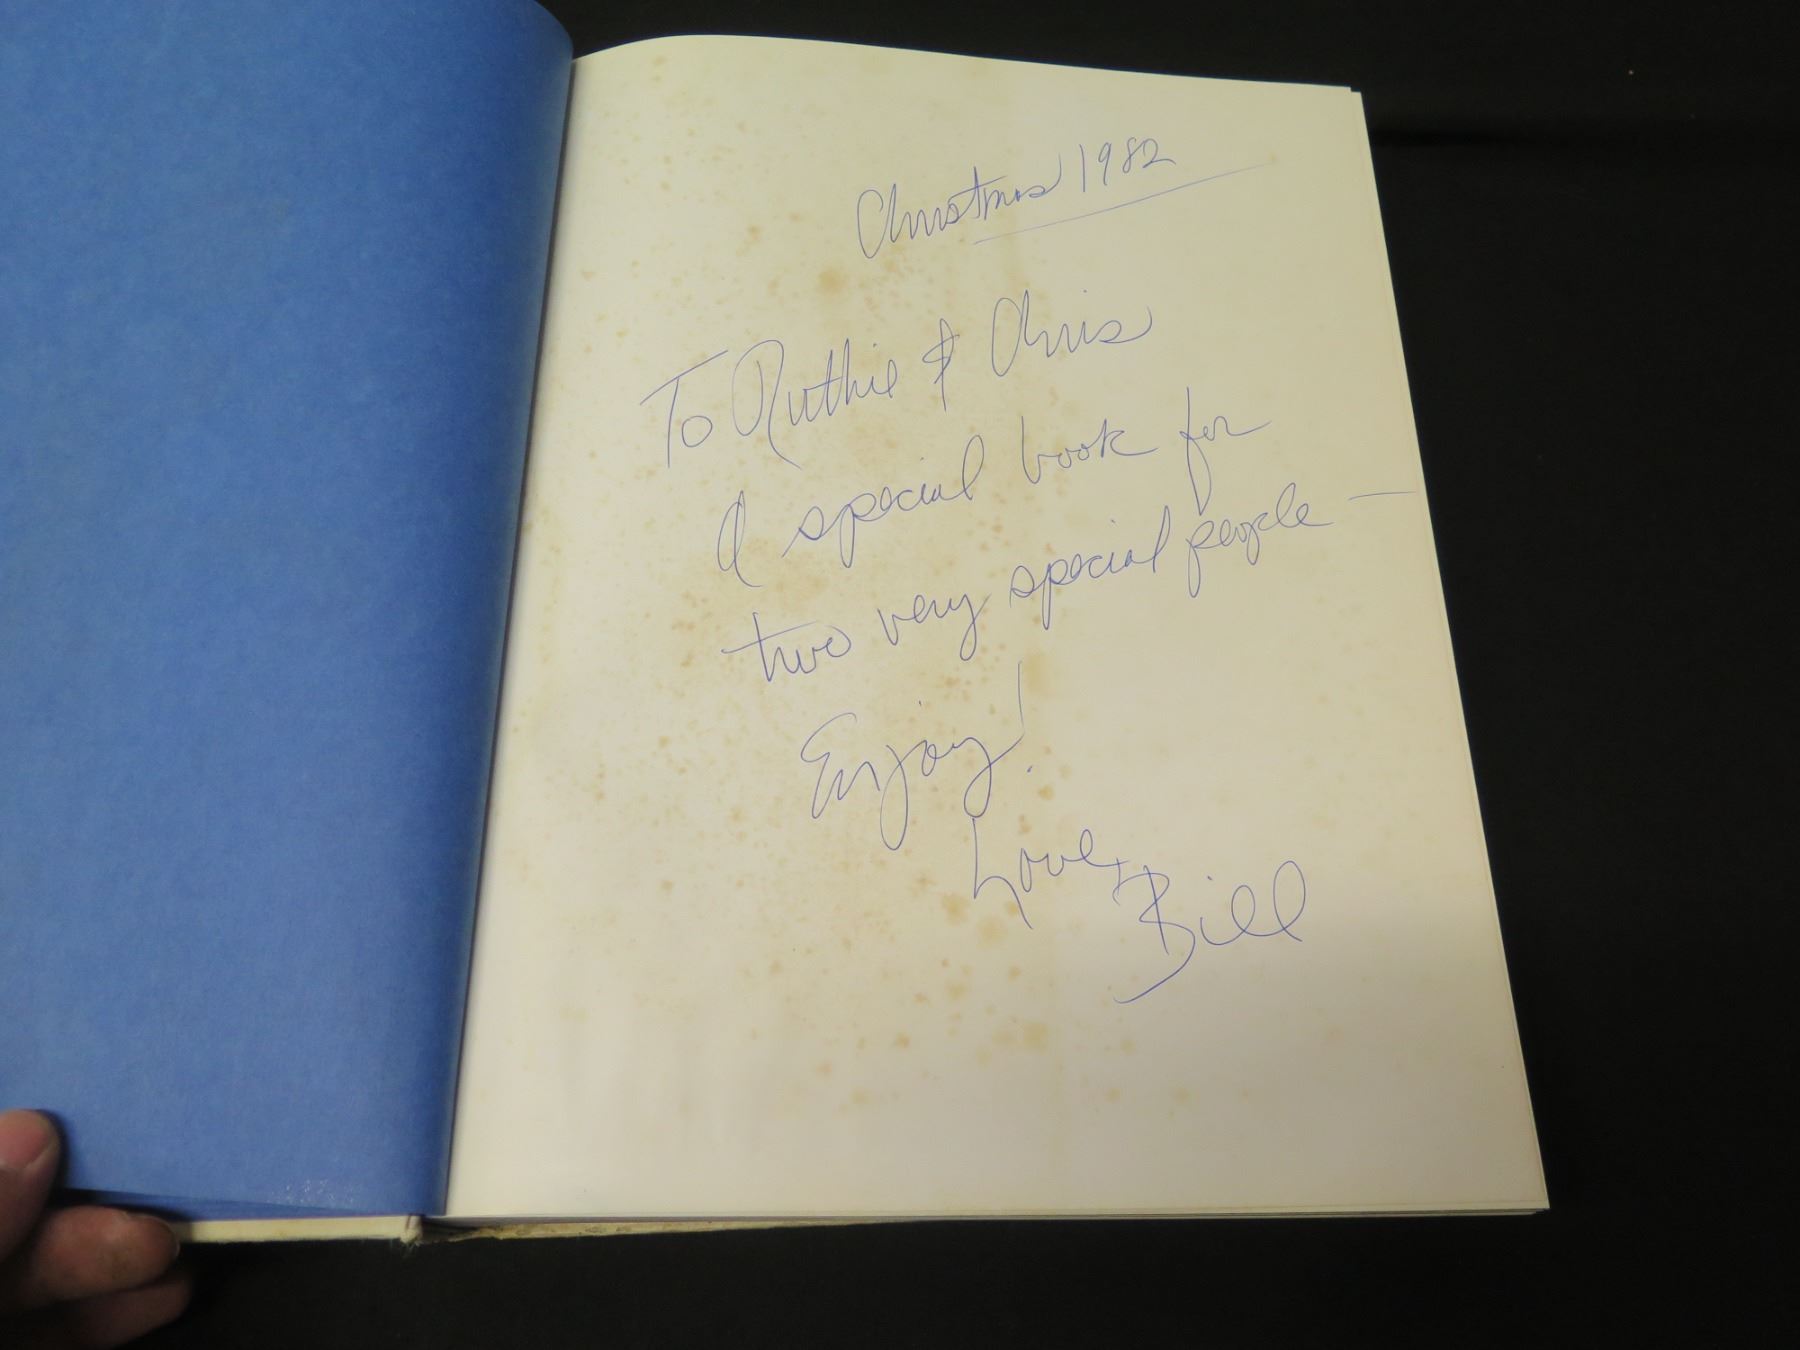 Christmas 1982
To Ruthie & Chris
A special book for
two very special people —
Enjoy!
Love,
Bill